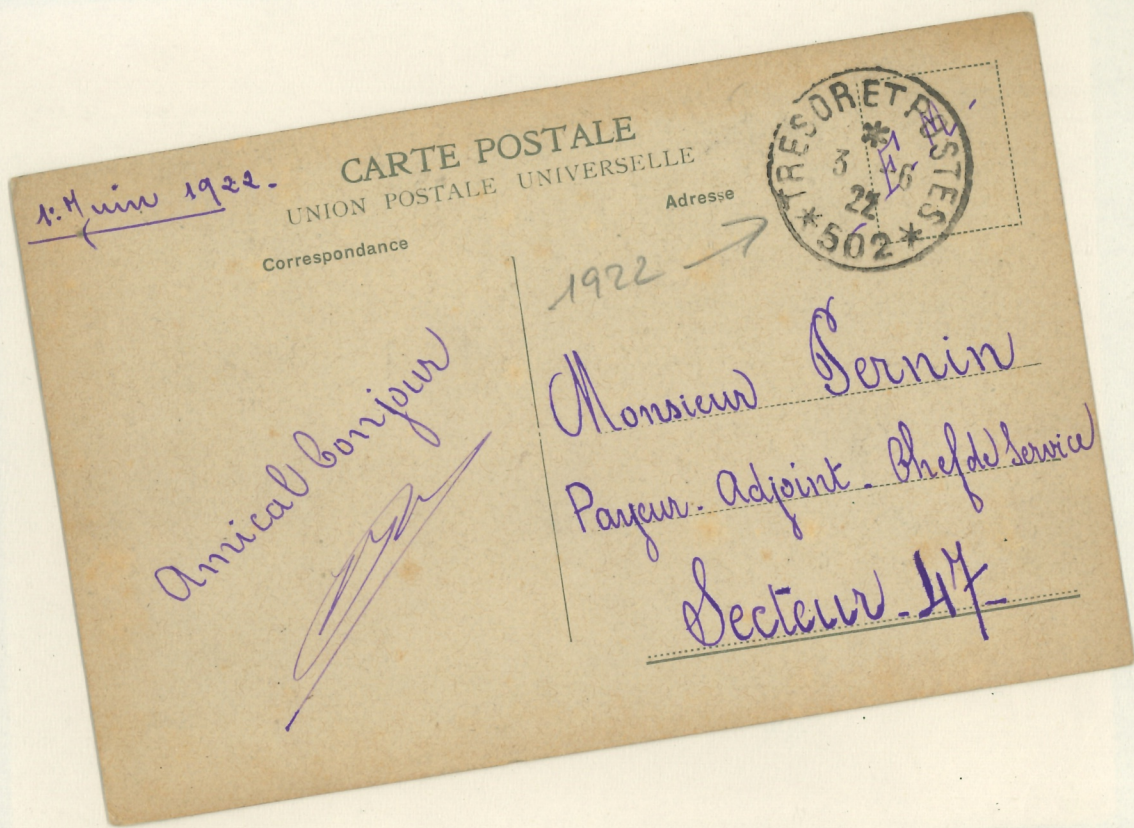 CARTE POSTALE
UNION POSTALE UNIVERSELLE
1er Juin 1922.
Correspondance
Adresse
TRESOR ET POSTES
3 - 6
22
*502*
1922
Amical bonjour
Monsieur Pernin
Payeur - Adjoint - Chef de Service
Secteur - 47